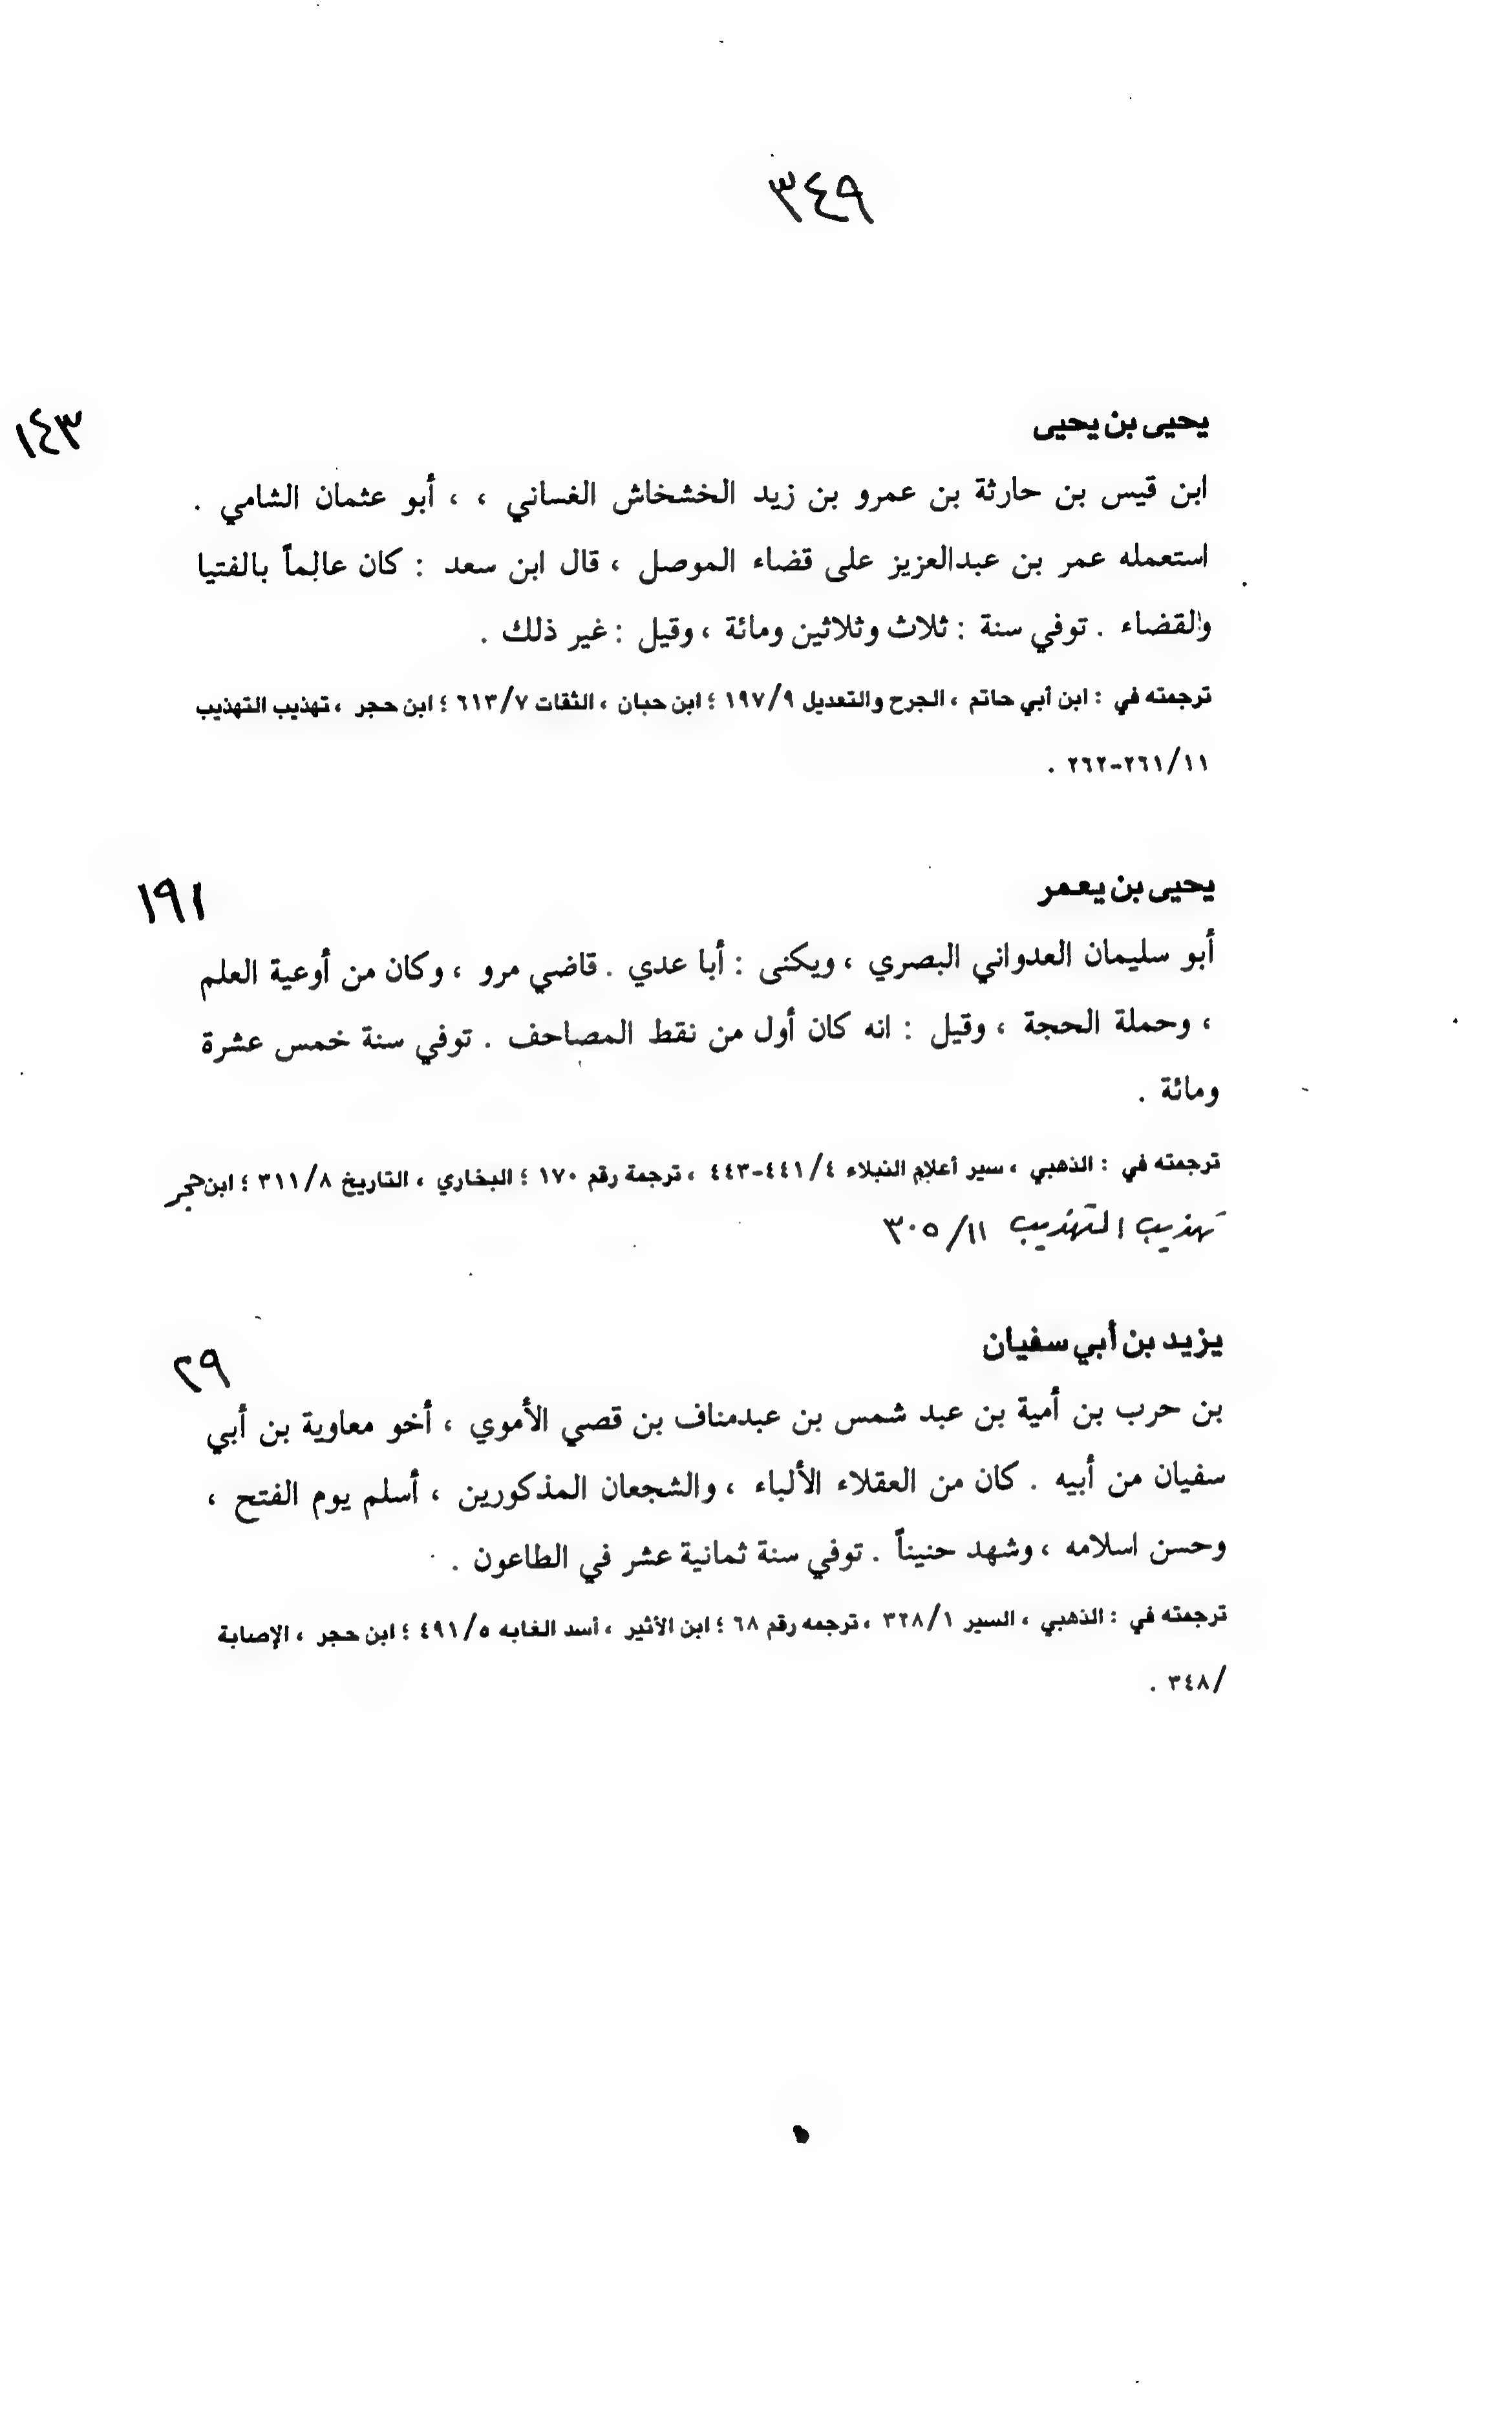 ٣٤٩
يحيى بن يحيى ١٤٣
ابن قيس بن حارثة بن عمرو بن زيد الخشخاش الغساني ، ، أبو عثمان الشامي .
استعمله عمر بن عبدالعزيز على قضاء الموصل ، قال ابن سعد : كان عالِماً بالفتيا
والقضاء . توفي سنة : ثلاث وثلاثين ومائة ، وقيل : غير ذلك .
ترجمته في : ابن أبي حاتم ، الجرح والتعديل ١٩٧/٩ ؛ ابن حبان ، الثقات ٦١٣/٧ ؛ ابن حجر ، تهذيب التهذيب
٢٦١/١١-٢٦٢ .
يحيى بن يعمر ١٩١
أبو سليمان العدواني البصري ، ويكنى : أبا عدي . قاضي مرو ، وكان من أوعية العلم
، وحملة الحجة ، وقيل : انه كان أول من نقط المصاحف . توفي سنة خمس عشرة
ومائة .
ترجمته في : الذهبي ، سير أعلام النبلاء ٤٤١/٤-٤٤٣ ، ترجمة رقم ١٧٠ ؛ البخاري ، التاريخ ٣١١/٨ ؛ ابن حجر
تهذيب التهذيب ٣٠٥/١١
يزيد بن أبي سفيان ٢٩
بن حرب بن أمية بن عبد شمس بن عبدمناف بن قصي الأموي ، أخو معاوية بن أبي
سفيان من أبيه . كان من العقلاء الألباء ، والشجعان المذكورين ، أسلم يوم الفتح ،
وحسن اسلامه ، وشهد حنيناً . توفي سنة ثمانية عشر في الطاعون .
ترجمته في : الذهبي ، السير ٣٢٨/١ ، ترجمه رقم ٦٨ ؛ ابن الأثير ، أسد الغابه ٤٩١/٥ ؛ ابن حجر ، الإصابة
/٣٤٨ .